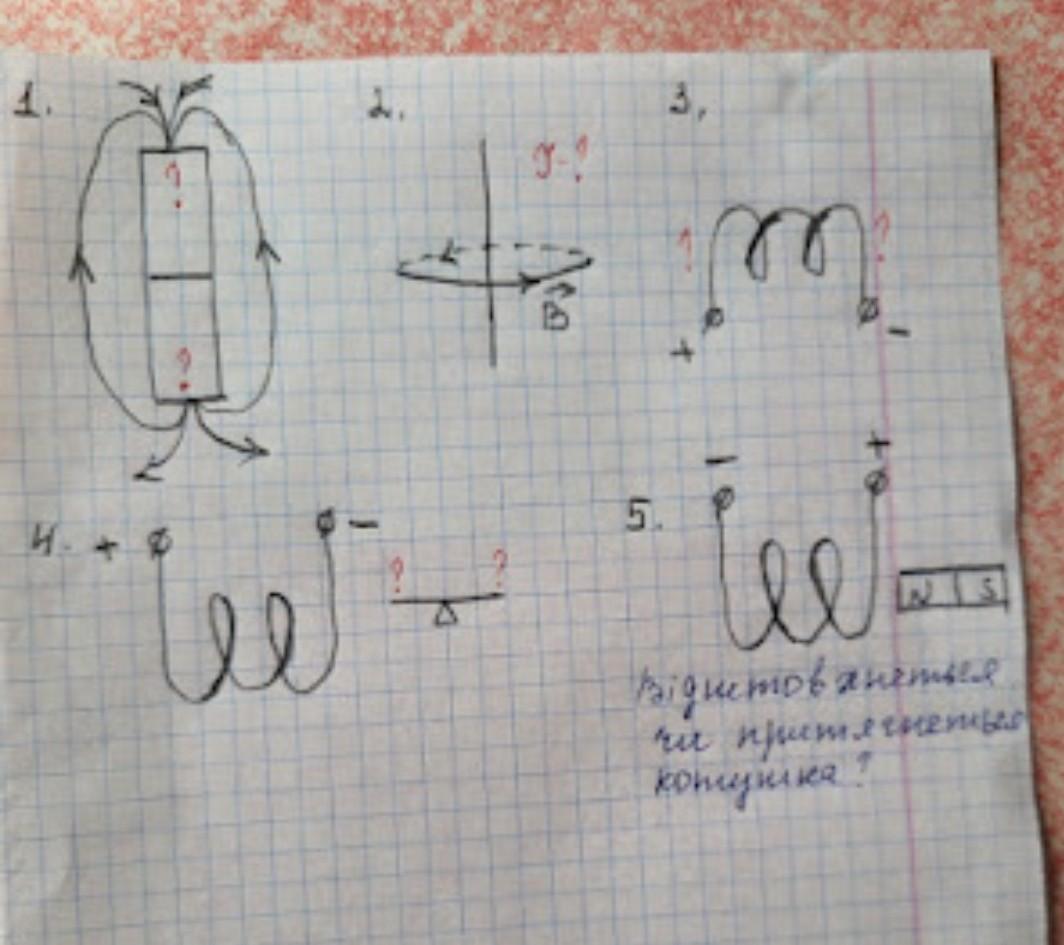 1.
?
?
2.
I-?
B
3.
?
?
+
-
4.
+
-
?
?
5.
-
+
N S
Відштовхнеться
чи притягнеться
котушка?